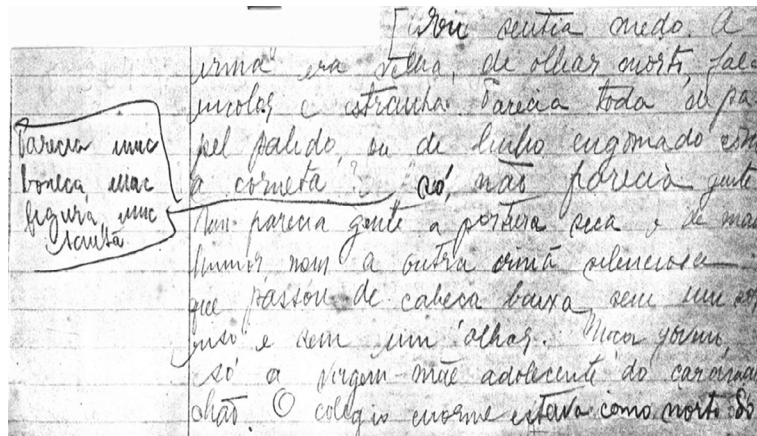 sentia medo. A
irmã era velha, de olhar morto, fala
incolor e estranha. Parecia toda de pa-
pel palido, ou de linho engomado com
a corneta só, não parecia gente
Nem parecia gente a porteira seca e de mau
humor nem a outra irmã silenciosa
que passou de cabeça baixa sem um sor-
riso e sem um olhar. Moça
só a virgem-mãe adolecente do caraman-
chão. O colegio enorme estava como morto. Só
Parecia uma
boneca, uma
figura, uma